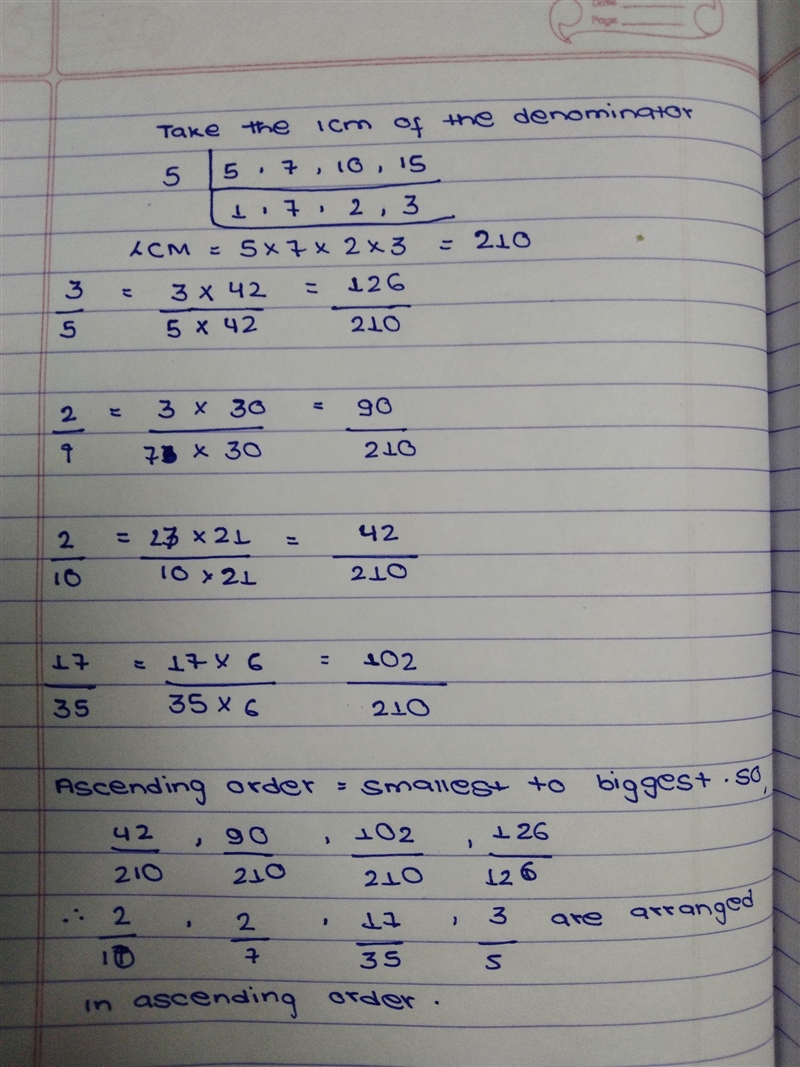 Date
Page
Take the lcm of the denominator
5 | 5, 7, 10, 15
1, 7, 2, 3
LCM = 5 × 7 × 2 × 3 = 210
3/5 = 3 × 42 / 5 × 42 = 126/210
2/9 = 3 × 30 / 7 × 30 = 90/210
2/10 = 2 × 21 / 10 × 21 = 42/210
17/35 = 17 × 6 / 35 × 6 = 102/210
Ascending order = smallest to biggest. so,
42/210, 90/210, 102/210, 126/126
∴ 2/10, 2/7, 17/35, 3/5 are arranged
in ascending order.